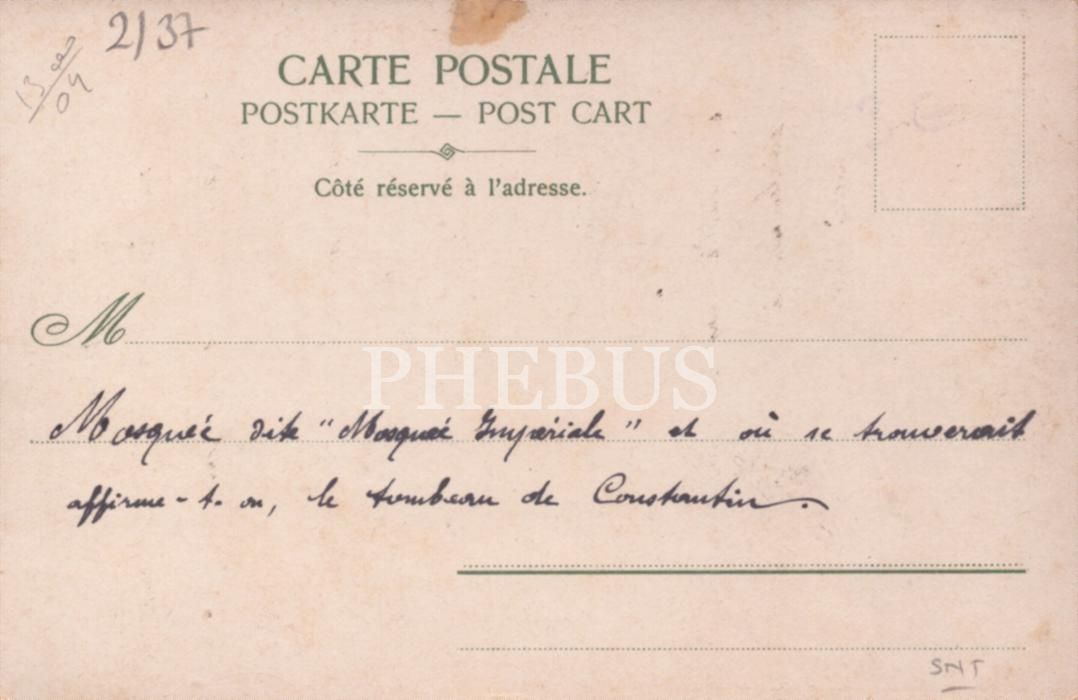 2/37
13
04
CARTE POSTALE
POSTKARTE — POST CART
Côté réservé à l'adresse.
M
PHEBUS
Mosquée dite "Mosquée Impériale" et où se trouverait
affirme-t-on, le tombeau de Constantin.
SNT